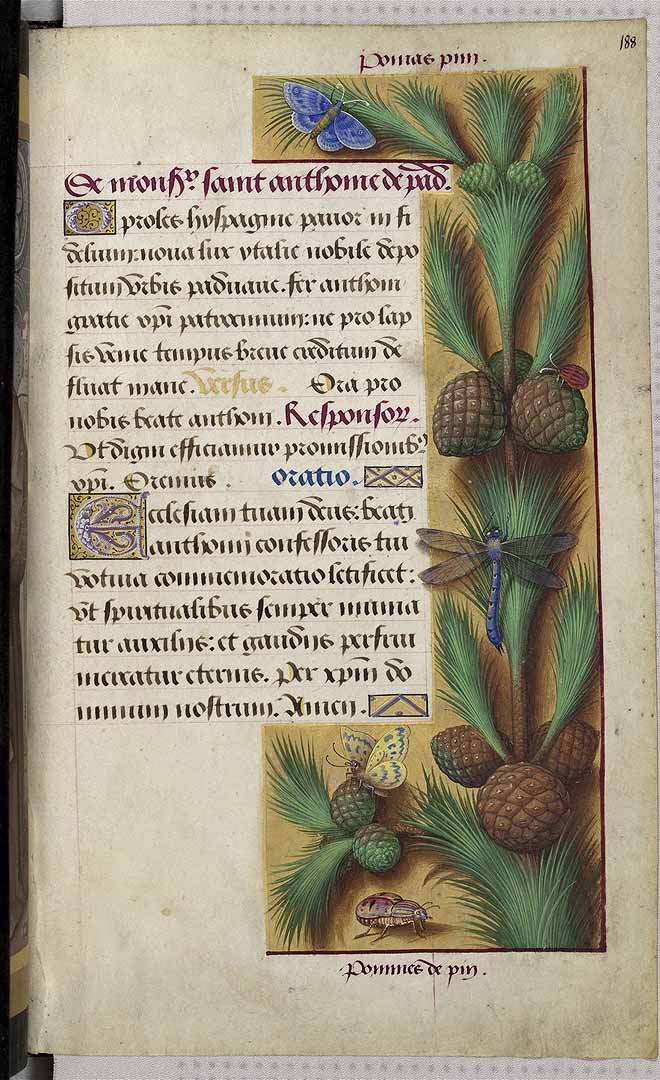 188
pomas pin.
De monsʳ. saint anthoine de pad.
O proles hyspagnie pavor in fi
delium: nova lux ytalie nobile depo
situm urbis paduane. fer anthoni
gratie xpi patrocinium: ne pro lap
sis venie tempus breve creditum de
fluat inane. Versus. Ora pro
nobis beate anthoni. Responsor.
Vt digni efficiamur promissionibꝰ
xpi. Oremus. oratio.
Ecclesiam tuam deus: beati
anthonij confessoris tui
votiva commemoratio letificet:
vt spiritualibus semper munia
tur auxilijs: et gaudijs perfrui
mereatur eternis. Per xpm do
minum nostrum. Amen.
Pommes de pin.